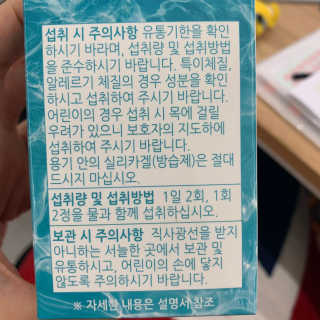 섭취 시 주의사항 유통기한을 확인
하시기 바라며, 섭취량 및 섭취방법
을 준수하시기 바랍니다. 특이체질,
알레르기 체질의 경우 성분을 확인
하시고 섭취하여 주시기 바랍니다.
어린이의 경우 섭취 시 목에 걸릴
우려가 있으니 보호자의 지도하에
섭취하여 주시기 바랍니다.
용기 안의 실리카겔(방습제)은 절대
드시지 마십시오.
섭취량 및 섭취방법 1일 2회, 1회
2정을 물과 함께 섭취하십시오.
보관 시 주의사항 직사광선을 받지
아니하는 서늘한 곳에서 보관 및
유통하시고, 어린이의 손에 닿지
않도록 주의하시기 바랍니다.
※ 자세한 내용은 설명서 참조